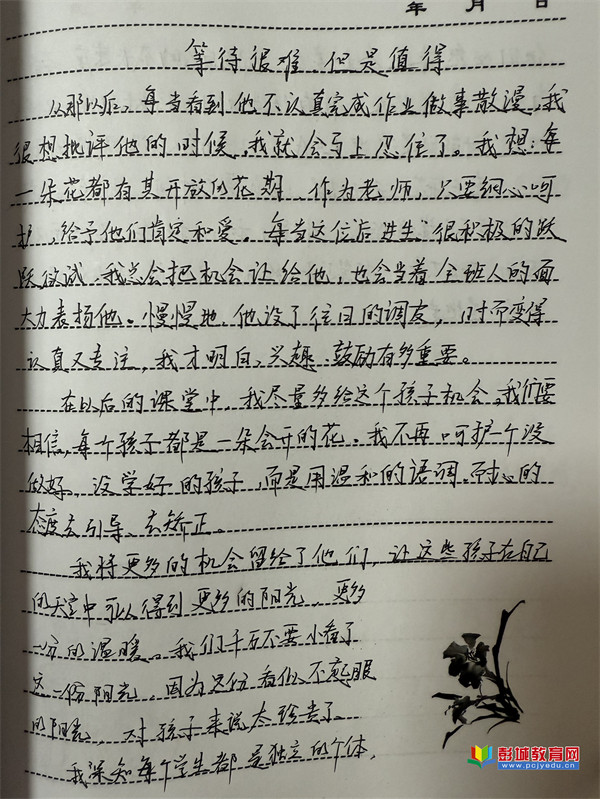 年 月 日
等待很难,但是值得
从那以后,每当看到他不认真完成作业做事散漫,我
很想批评他的时候,我就会马上忍住了。我想:每
一朵花都有其开放的花期,作为老师,只要细心呵
护,给予他们肯定和爱。每当这位后进生很积极的跃
跃欲试,我总会把机会让给他,也会当着全班人的面
大力表扬他。慢慢地,他没了往日的调皮,时而变得
认真又专注,我才明白,兴趣、鼓励有多重要。
在以后的课堂中,我尽量多给这个孩子机会,我们要
相信,每个孩子都是一朵会开的花。我不再呵护一个没
做好,没学好的孩子,而是用温和的语调、耐心的
态度去引导、去矫正。
我将更多的机会留给了他们,让这些孩子在自己
的天空中可以得到更多的阳光,更多
一份的温暖。我们千万不要小看了
这一份阳光,因为只份看似不起眼
的阳光,对孩子来说太珍贵了。
我深知每个学生都是独立的个体,
彭城教育网
www.pcjyedu.cn